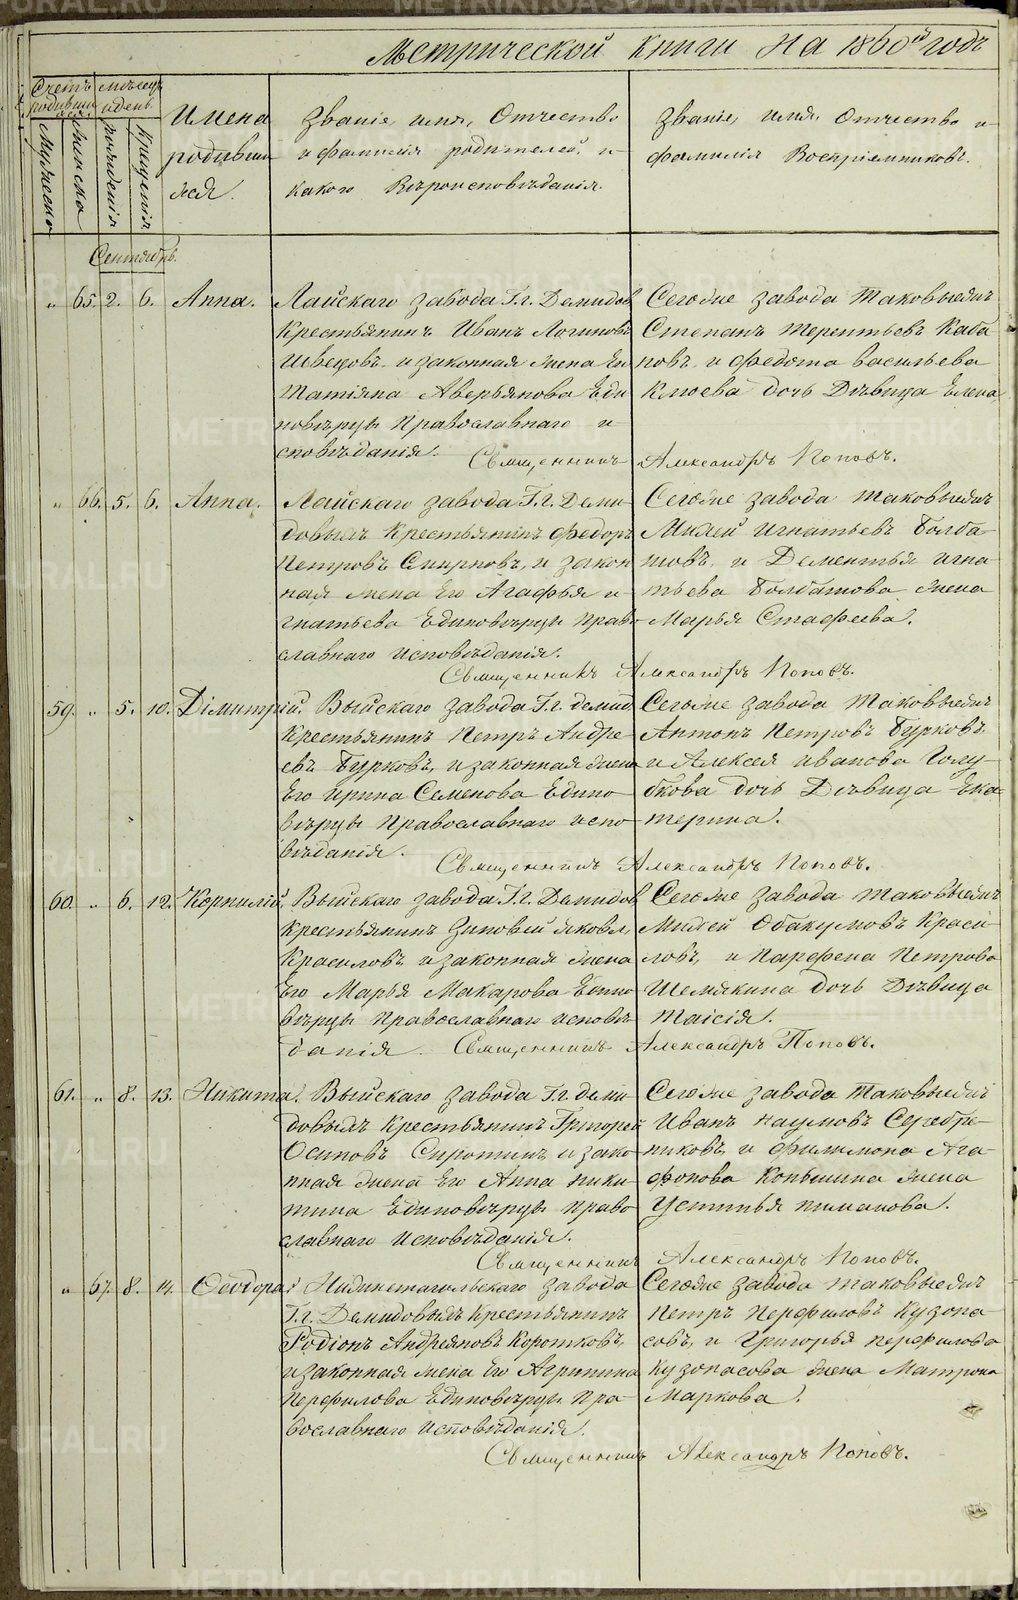 Метрической книги на 1860й годъ
Счетъ родивших
мѣсяцъ и день
Мужеска
Женска
рожденія
Крещенія
Имена
родивши
яся.
Званіе имя, Отчество
и фамилія родителей, и
какого Вѣроисповѣданія.
Званіе, имя, Отчество и
фамилія Воспріемниковъ.
Сентябрь.
" 65. 2. 6. Анна.
Лайскаго завода Г.г. Демидов
Крестьянинъ Иванъ Логиновъ
Швецовъ и законная жена Ег
Татіяна Аверьянова Еди
новѣрцы Православнаго и
сповѣданія.
Сегоже завода таковыежъ
Степанъ Терентьевъ Каба
новъ и Федота Васильева
Клюева дочь Дѣвица Елена
Священникъ Александръ Поповъ.
" 66. 5. 6. Анна.
Лайскаго завода Г.г. Деми
довыхъ Крестьянинъ Федоръ
Петровъ Смирновъ, и закон
ная жена Его Агафья И
гнатьева Единовѣрцы Право
славнаго исповѣданія.
Сегоже завода таковыежъ
Михей Игнатьевъ Болба
товъ, и Дементья Игна
тьева Болбатова жена
Марья Стафеева.
Священникъ Александръ Поповъ.
59. " 5. 10. Дімитрій.
Выйскаго завода Г.г. Демид
Крестьянинъ Петръ Андре
евъ Бурковъ, и законная жена
Его Ирина Семенова Едино
вѣрцы Православнаго испо
вѣданія.
Сегоже завода таковыежъ
Антонъ Петровъ Бурковъ
и Алексея Иванова Голу
бкова дочь Дѣвица Ека
терина.
Священникъ Александръ Поповъ.
60. " 6. 12. Корнилій.
Выйскаго завода Г.г. Демидов
Крестьянинъ Зиновей Яковл.
Красиловъ и законная жена
Его Марья Макарова Едино
вѣрцы Православнаго исповѣ
данія.
Сегоже завода таковыежъ
Михей Обакумовъ Краси
ловъ, и Парфена Петрова
Шемякина дочь Дѣвица
Таисія.
Священникъ Александръ Поповъ.
61. " 8. 13. Никита.
Выйскаго завода Г.г. Деми
довыхъ Крестьянинъ Григорей
Осиповъ Сиротинъ и зако
нная жена Его Анна Ники
тина Единовѣрцы право
славнаго Исповѣданія.
Сегоже завода таковыежъ
Иванъ Наумовъ Серебре
никовъ, и Филимона Ага
фонова Копысина жена
Устинья Пиманова.
Священникъ Александръ Поповъ.
" 67. 8. 14. Феодора.
Нижнетагильскаго завода
Г.г. Демидовыхъ Крестьянинъ
Родіонъ Андреяновъ Коротковъ,
и законная жена Его Агрипина
Перфилова Единовѣрцы Пра
вославнаго Исповѣданія.
Сегоже завода таковыежъ
Петръ Перфиловъ Кузопа
совъ, и Григорья Перфилова
Кузопасова жена Матрона
Маркова.
Священникъ Александръ Поповъ.
METRIKI.GASO-URAL.RU